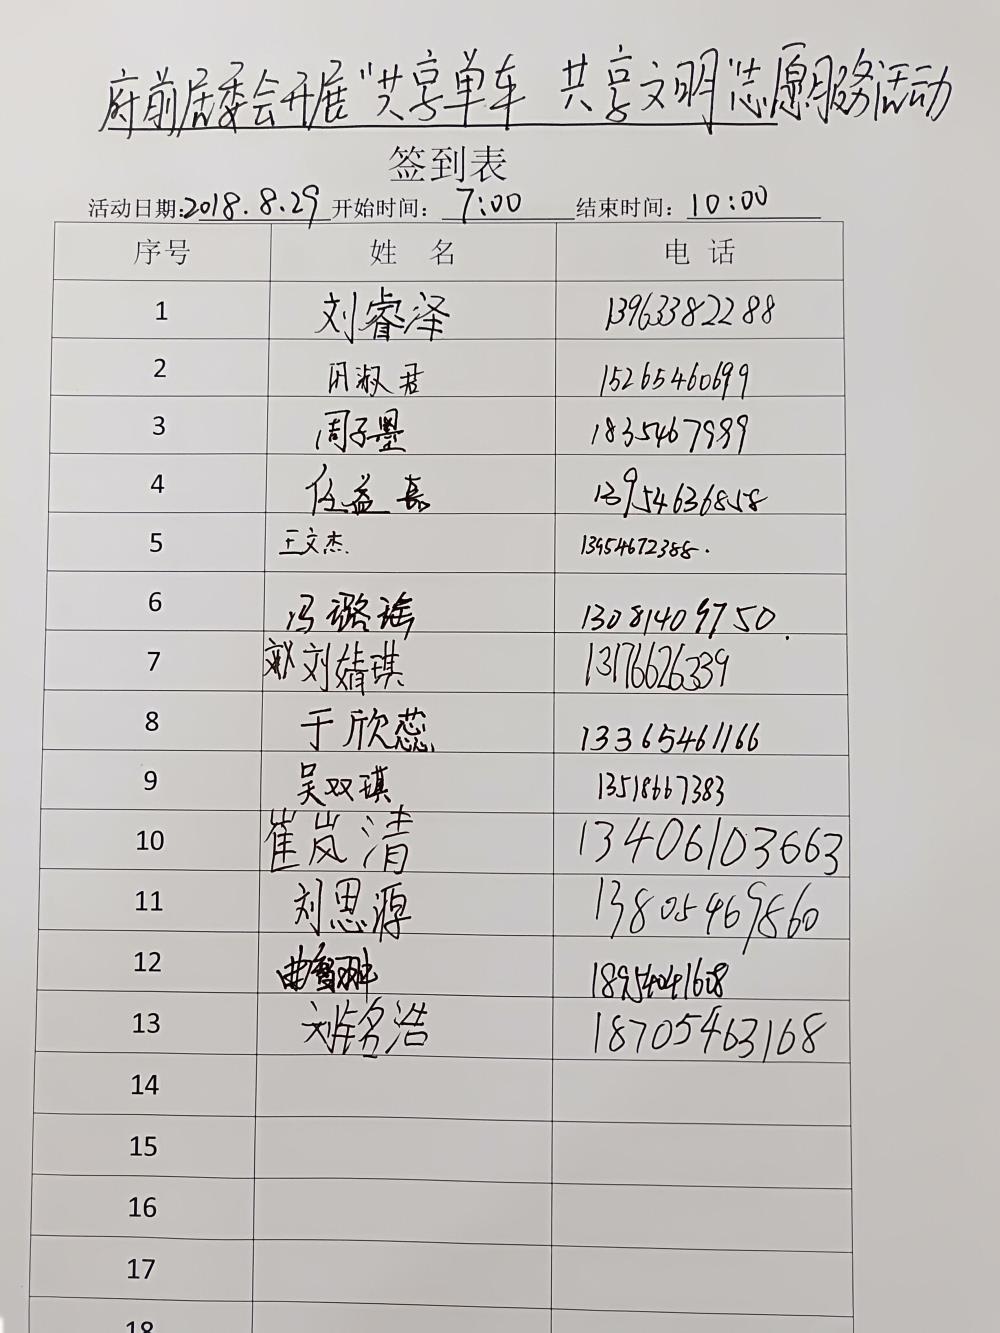 府前居委会开展“共享单车 共享文明”志愿服务活动
签到表
活动日期:2018.8.29 开始时间: 7:00 结束时间: 10:00
序号 姓名 电话
1 刘睿泽 13963382288
2 闫淑君 15265460699
3 周子墨 18354679999
4 任益嘉 13954636858
5 王文杰 13954672388.
6 冯璐瑶 13081409750.
7 刘婧琪 13176626339
8 于欣蕊 13365461166
9 吴双琪 13518667383
10 崔岚清 13406103663
11 刘思源 13805469860
12
13 刘铭浩 18705463168
14
15
16
17
18